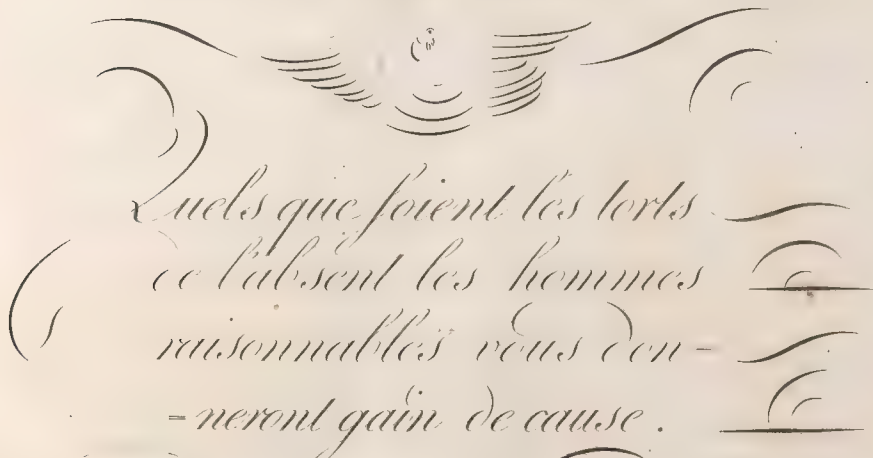 Quels que soient les torts
de l'absent les hommes
raisonnables vous don-
=neront gain de cause.